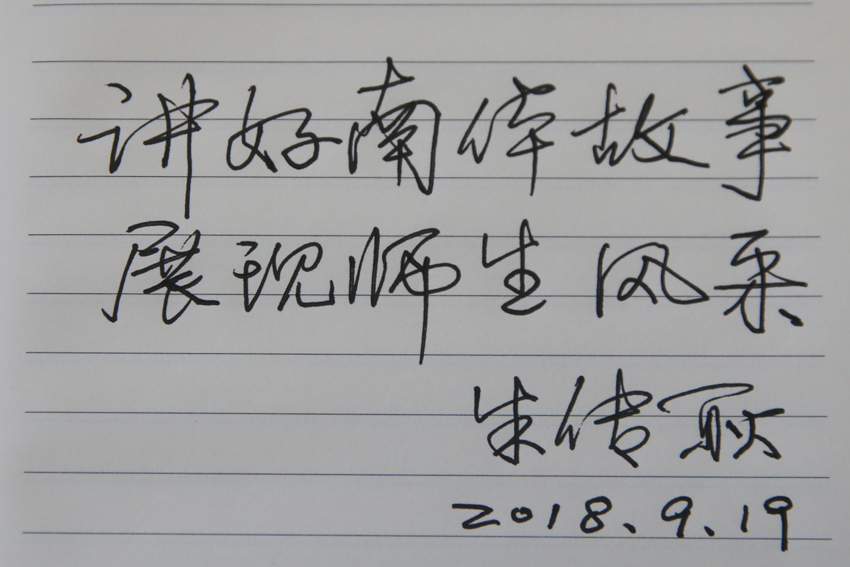 讲好南体故事
展现师生风采
朱传耿
2018.9.19